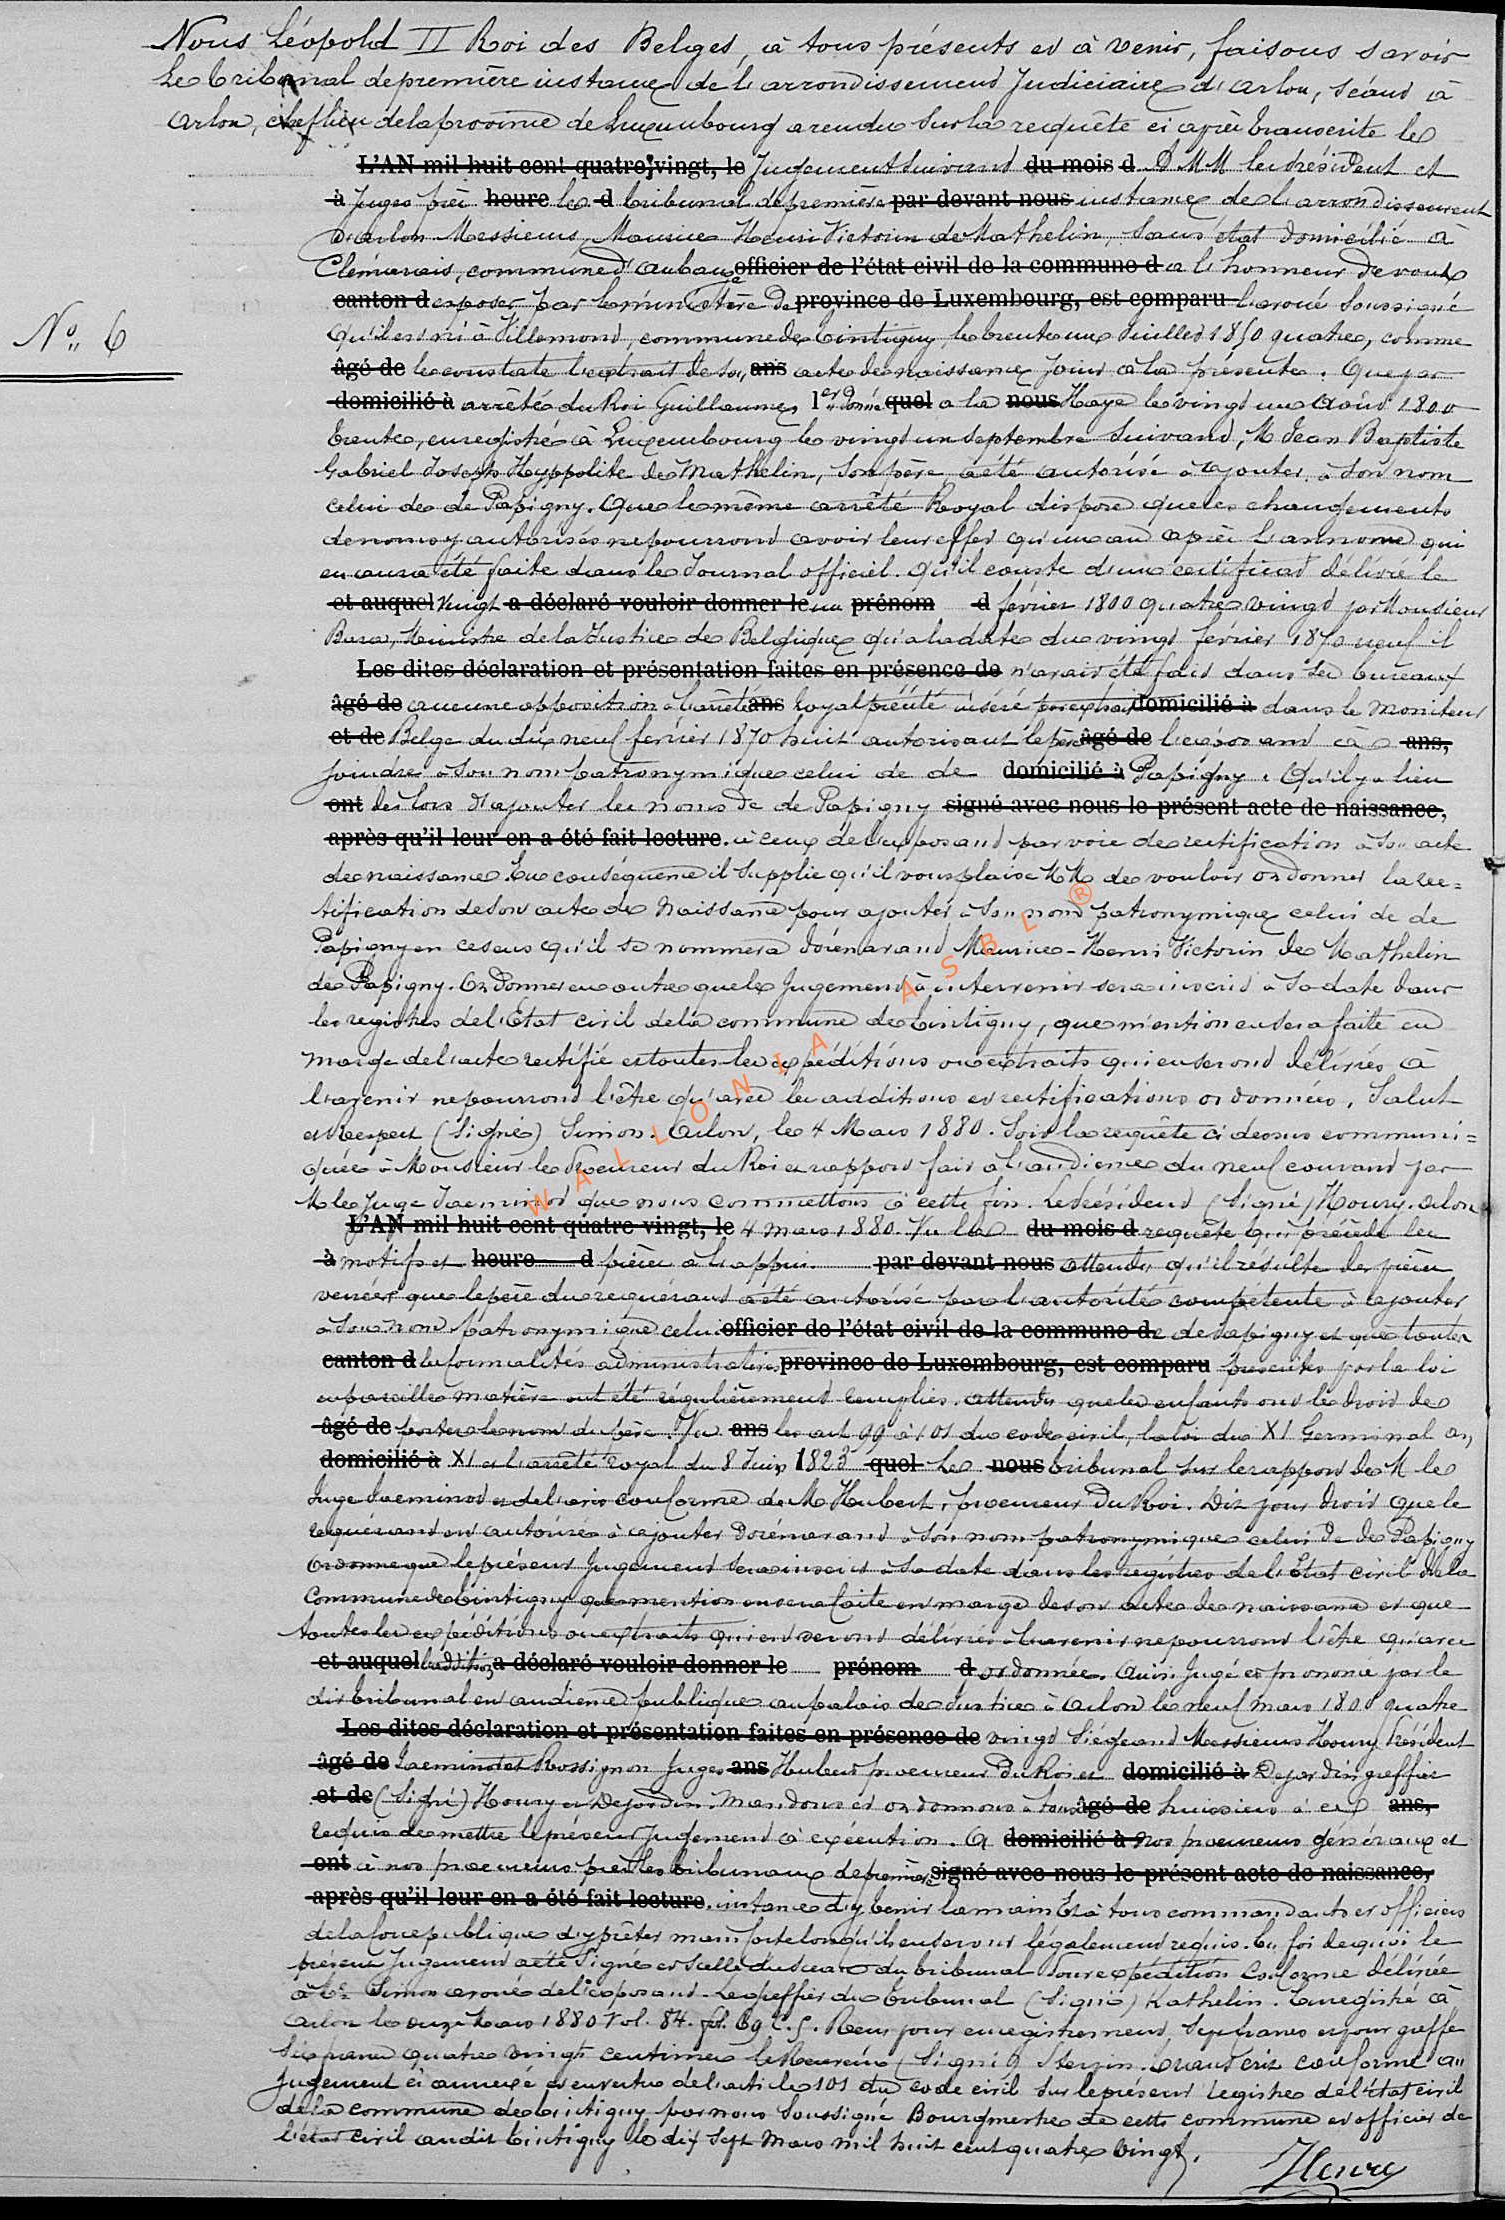 Nous Léopold II Roi des Belges, à tous présents et à venir, faisons savoir
Le tribunal de première instance de l'arrondissement Judiciaire d'Arlon, séant à
Arlon, chef lieu de la province de Luxembourg a rendu sur la requête ci après transcrite le
L'AN mil huit cent quatre-vingt, le Jugement suivant du mois d A MM le Président et
à Juges près heure le d tribunal de première par devant nous instance de l'arrondissement
d'Arlon Messieurs, Maurice Henri Victorin de Mathelin, sans état domicilié à
Clémarais, commune d'Aubange officier de l'état civil de la commune d a l'honneur de vous
canton d exposer par le ministère de province de Luxembourg, est comparu l'avoué soussigné
qu'il est né à Villemont, commune de Tintigny, le trente un Juillet 1850 quatre, comme
âgé de le constate l'extrait de son ans acte de naissance joint à la présente. Que par
domicilié à arrêté du Roi Guillaume 1er donné quel a la nous Haye le vingt un Août 1800
trente, enregistré à Luxembourg le vingt un septembre suivant, M Jean Baptiste
Gabriel Joseph Hyppolite de Mathelin, son père, a été autorisé à ajouter à son nom
celui de de Papigny. Que le même arrêté Royal dispose que les changements
de noms y autorisés ne pourront avoir leur effet qu'un an après l'annonce qui
en aura été faite dans le Journal officiel. Qu'il conste d'un certificat délivré le
et auquel vingt a déclaré vouloir donner le un prénom d février 1800 quatre vingt par Monsieur
Bara, Ministre de la Justice de Belgique qu'à la date du vingt février 1870 neuf il
Les dites déclaration et présentation faites en présence de n'avait été fait dans ses bureaux
âgé de aucune opposition à l'arrêté ans Royal précité inséré par extrait domicilié à dans le Moniteur
et de Belge du dix neuf février 1870 huit autorisant le père âgé de l'exposant à ans,
joindre à son nom patronymique celui de de domicilié à Papigny. Qu'il y a lieu
ont dès lors d'ajouter les noms de de Papigny signé avec nous le présent acte de naissance,
après qu'il leur en a été fait lecture. à ceux de l'exposant par voie de rectification à son acte
de naissance. En conséquence il supplie qu'il vous plaise MM de vouloir ordonner la rec=
tification de son acte de Naissance pour ajouter à son nom patronymique celui de de
Papigny en ce sens qu'il se nommera dorénavant Maurice-Henri Victorin de Mathelin
de Papigny. Ordonner en outre que le Jugement à intervenir sera inscrit à sa date dans
les registres de l'Etat civil de la commune de Tintigny, que mention en sera faite en
marge de l'acte rectifié et toutes les expéditions ou extraits qui en seront délivrés à
l'avenir ne pourront l'être qu'avec les additions et rectifications ordonnées. Salut
et Respect (signé) Simon. Arlon, le 4 Mars 1880. Soit la requête ci dessus communi=
quée à Monsieur le Procureur du Roi et rapport fait à l'audience du neuf courant par
M le Juge Jaeminot que nous commettons à cette fin. Le Président (Signé) Houry. Arlon
L'AN mil huit cent quatre vingt, le 4 Mars 1880. Vu la du mois d requête qui précède les
à motifs et heure d pièces à l'appui. par devant nous attendu qu'il résulte des pièces
versées que le père du requérant a été autorisé par l'autorité compétente à ajouter
à son nom patronymique celui officier de l'état civil de la commune de de Papigny et que toutes
canton d les formalités administratives province de Luxembourg, est comparu prescrites par la loi
en pareille matière ont été régulièrement remplies. attendu que les enfants ont le droit de
âgé de porter le nom du père. Vu ans les art 99 à 101 du code civil, la loi du XI Germinal an
domicilié à XI et l'arrêté royal du 8 Juin 1823 quel Le nous tribunal sur le rapport de M le
Juge Jaeminot et de l'avis conforme de M Hubert, procureur du Roi. Dit pour droit que le
requérant est autorisé à ajouter dorénavant à son nom patronymique celui de de Papigny
ordonne que le présent Jugement sera inscrit à sa date dans les registres de l'Etat civil de la
commune de Tintigny que mention en sera faite en marge de son acte de naissance et que
toutes les expéditions ou extraits qui en seront délivrés à l'avenir ne pourront l'être qu'avec
et auquel l'addition a déclaré vouloir donner le prénom d ordonnée. Ainsi Jugé et prononcé par le
dit tribunal en audience publique au palais de Justice à Arlon le neuf mars 1800 quatre
Les dites déclaration et présentation faites en présence de vingt Siégeant Messieurs Houry Président
âgé de Jaeminot et Rossignon Juges ans Hubert procureur du Roi et domicilié à Dejardin greffier
et de (Signé) Houry et Dejardin. Mandons et ordonnons à tous âgé de huissiers à ce ans,
requis de mettre le présent Jugement à exécution. A domicilié à nos procureurs généraux et
ont à nos procureurs près les tribunaux de première signé avec nous le présent acte de naissance,
après qu'il leur en a été fait lecture. instance d'y tenir la main Et à tous commandants et officiers
de la force publique d'y prêter main forte lorsqu'ils en seront légalement requis. En foi de quoi le
présent Jugement a été signé et scellé du sceau du tribunal Pour expédition conforme délivrée
à Me Simon avoué de l'exposant. Le greffier du tribunal (signé) Mathelin. Enregistré à
Arlon le onze Mars 1880 Vol. 84. fol. 69 C. 5. Reçu pour enregistrement, sept francs et pour greffe
six francs quatre vingt centimes le Receveur (signé) Sterpin. Transcrit conforme au
Jugement ci annexé et en vertu de l'article 101 du code civil sur le présent registre de l'état civil
de la commune de Tintigny par nous soussigné Bourgmestre de cette commune et officier de
l'état civil audit Tintigny le dix sept Mars mil huit cent quatre vingt.
Henry
No 6
WALLONIA ASBL ®